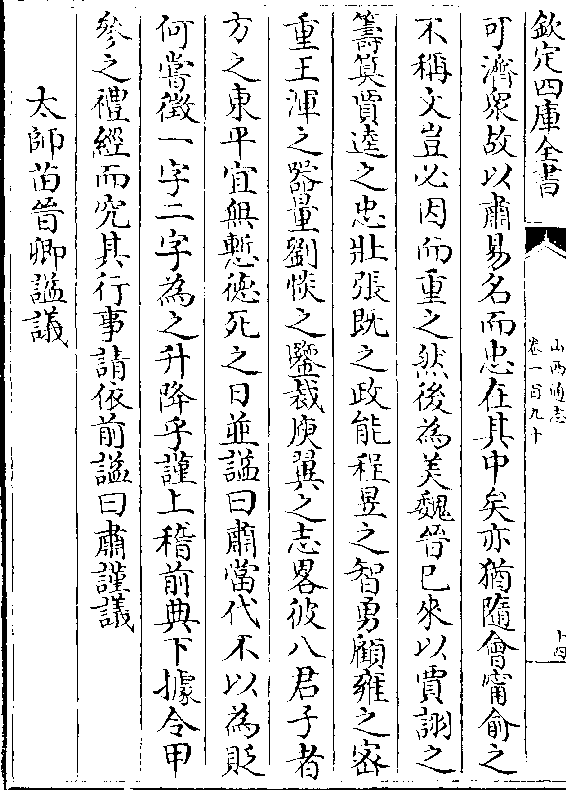 欽定四庫全書
山西通志
卷一百九十
十四
可濟衆故以肅易名而忠在其中矣亦猶隨會甯俞之
不稱文豈必因而重之然後為美魏晉已來以賈詡之
籌算賈逵之忠壯張既之政能程昱之智勇顧雍之密
重王渾之器量劉惔之鑒裁庾翼之志畧彼八君子者
方之東平宜無慙德死之日並諡曰肅當代不以為貶
何嘗徵一字二字為之升降乎謹上稽前典下據令甲
參之禮經而究其行事請依前諡曰肅謹議
太師苗晉卿諡議